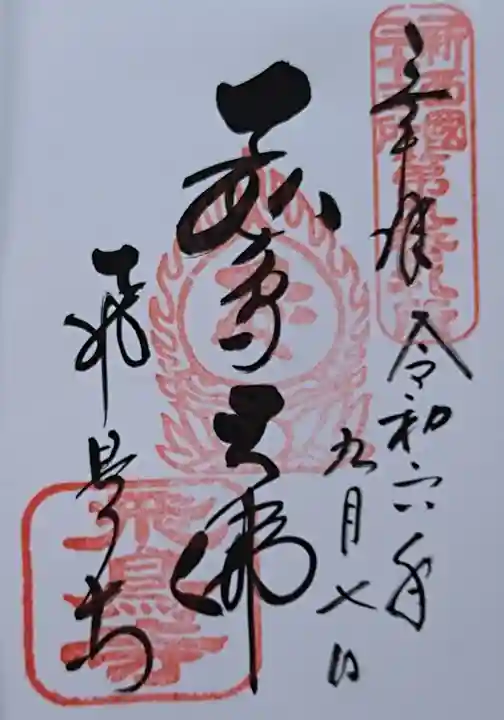 奉拝
令和六年
九月七日
飛鳥大佛
飛鳥寺
新西國
飛鳥寺